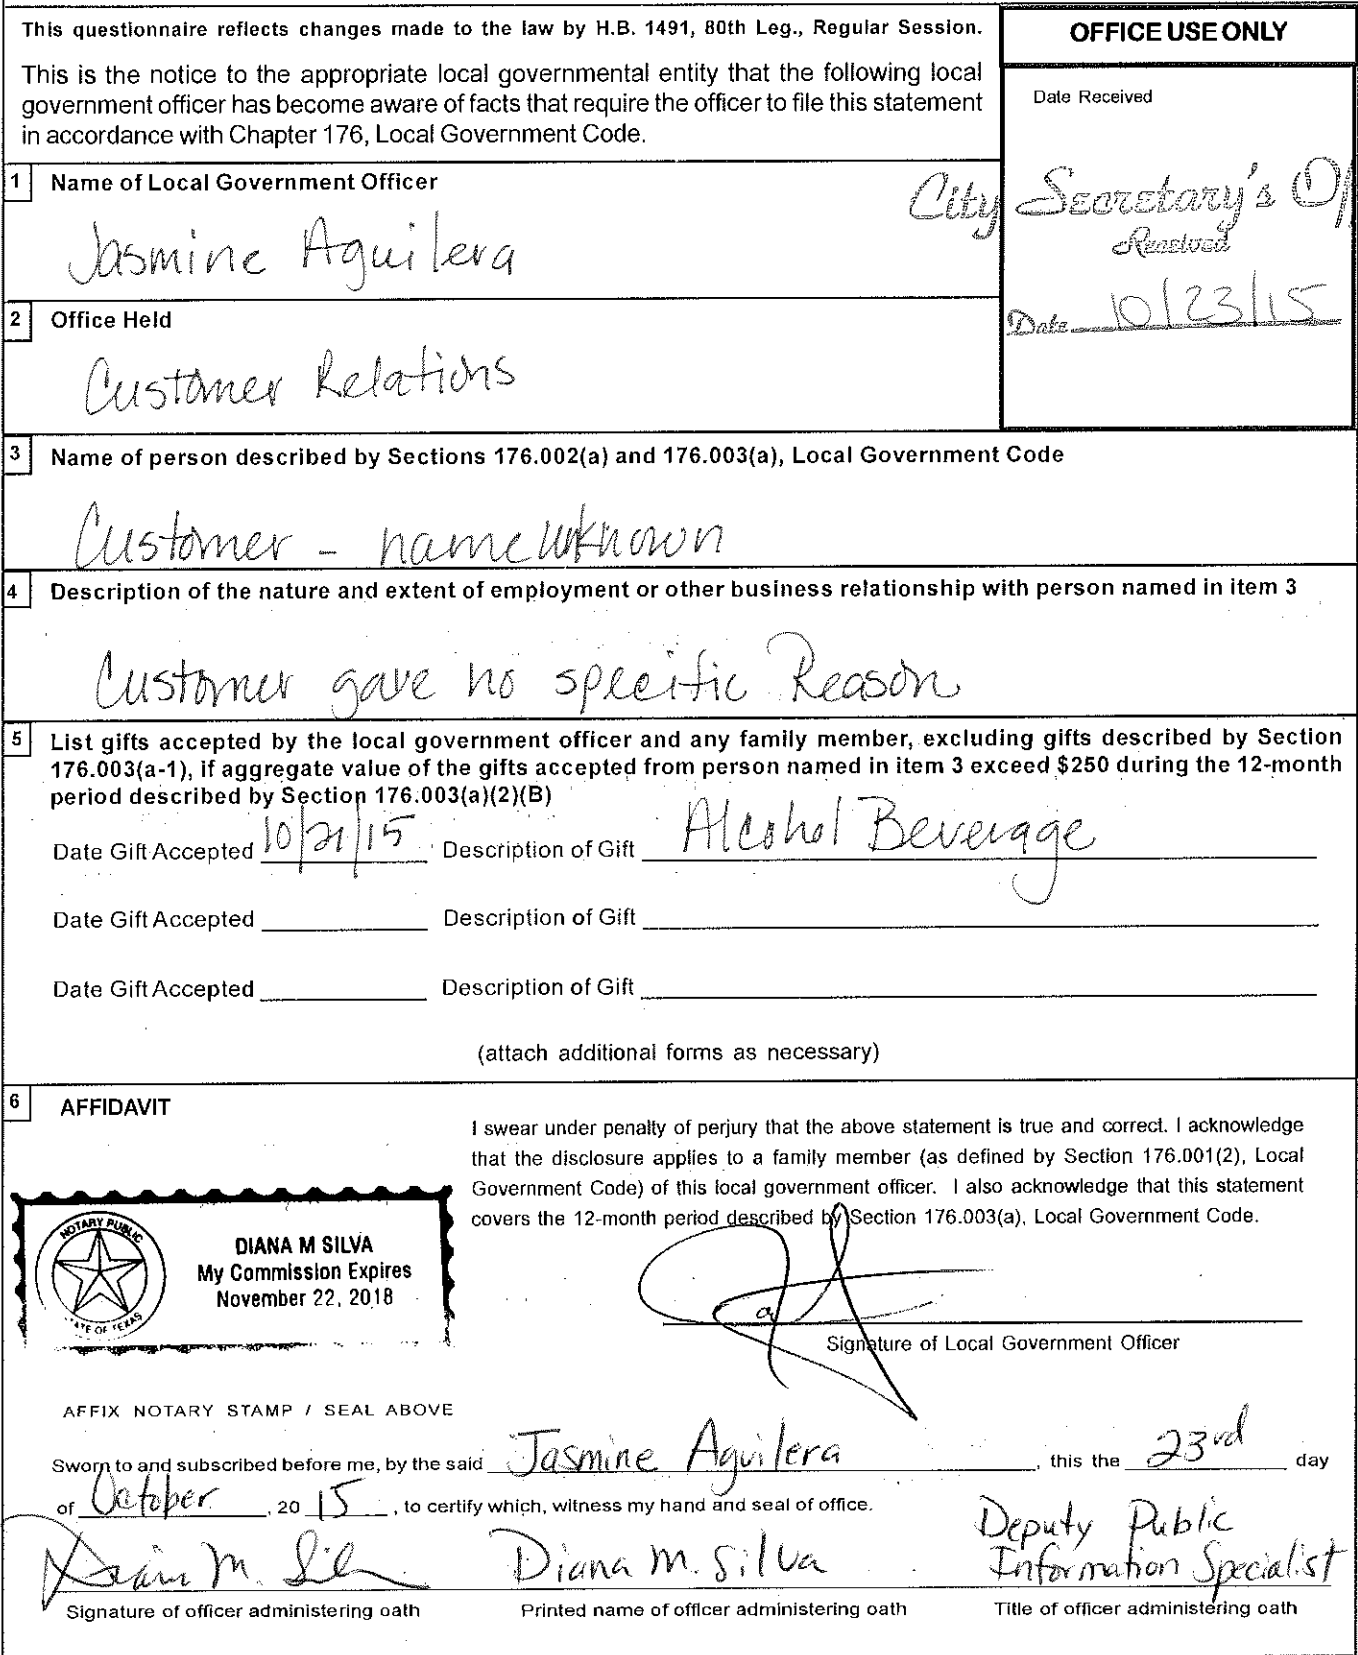 This questionnaire reflects changes made to the law by H.B. 1491, 80th Leg., Regular Session.
This is the notice to the appropriate local governmental entity that the following local
government officer has become aware of facts that require the officer to file this statement
in accordance with Chapter 176, Local Government Code.
OFFICE USE ONLY
Date Received
City Secretary's Of
Received
Date 10/23/15
1 Name of Local Government Officer
Jasmine Aguilera
2 Office Held
Customer Relations
3 Name of person described by Sections 176.002(a) and 176.003(a), Local Government Code
Customer - name unknown
4 Description of the nature and extent of employment or other business relationship with person named in item 3
Customer gave no specific Reason
5 List gifts accepted by the local government officer and any family member, excluding gifts described by Section
176.003(a-1), if aggregate value of the gifts accepted from person named in item 3 exceed $250 during the 12-month
period described by Section 176.003(a)(2)(B)
Date Gift Accepted 10/21/15 Description of Gift Alcohol Beverage
Date Gift Accepted Description of Gift
Date Gift Accepted Description of Gift
(attach additional forms as necessary)
6 AFFIDAVIT
I swear under penalty of perjury that the above statement is true and correct. I acknowledge
that the disclosure applies to a family member (as defined by Section 176.001(2), Local
Government Code) of this local government officer. I also acknowledge that this statement
covers the 12-month period described by Section 176.003(a), Local Government Code.
NOTARY PUBLIC
DIANA M SILVA
My Commission Expires
November 22, 2018
Signature of Local Government Officer
AFFIX NOTARY STAMP / SEAL ABOVE
Sworn to and subscribed before me, by the said Jasmine Aguilera, this the 23rd day
of October, 20 15, to certify which, witness my hand and seal of office.
Diana M. Silva Deputy Public
Information Specialist
Signature of officer administering oath Printed name of officer administering oath Title of officer administering oath